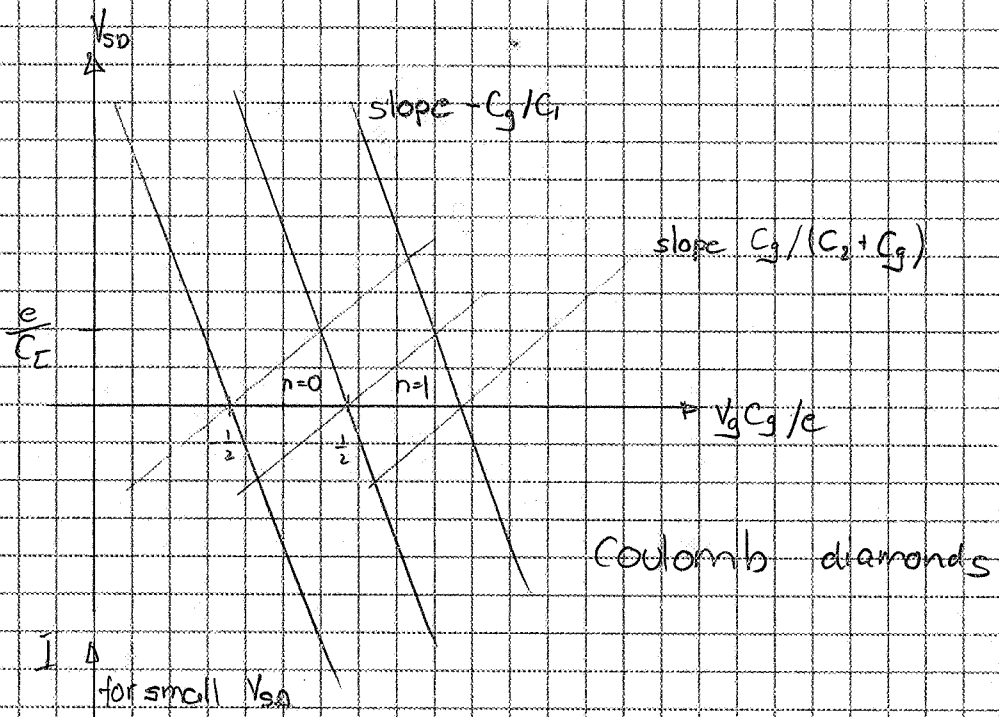 V_SD
slope -Cg/C₁
slope Cg/(C₂+Cg)
e/C_Σ
n=0 n=1
VgCg/e
1/2 1/2
Coulomb diamonds
I
for small V_SD